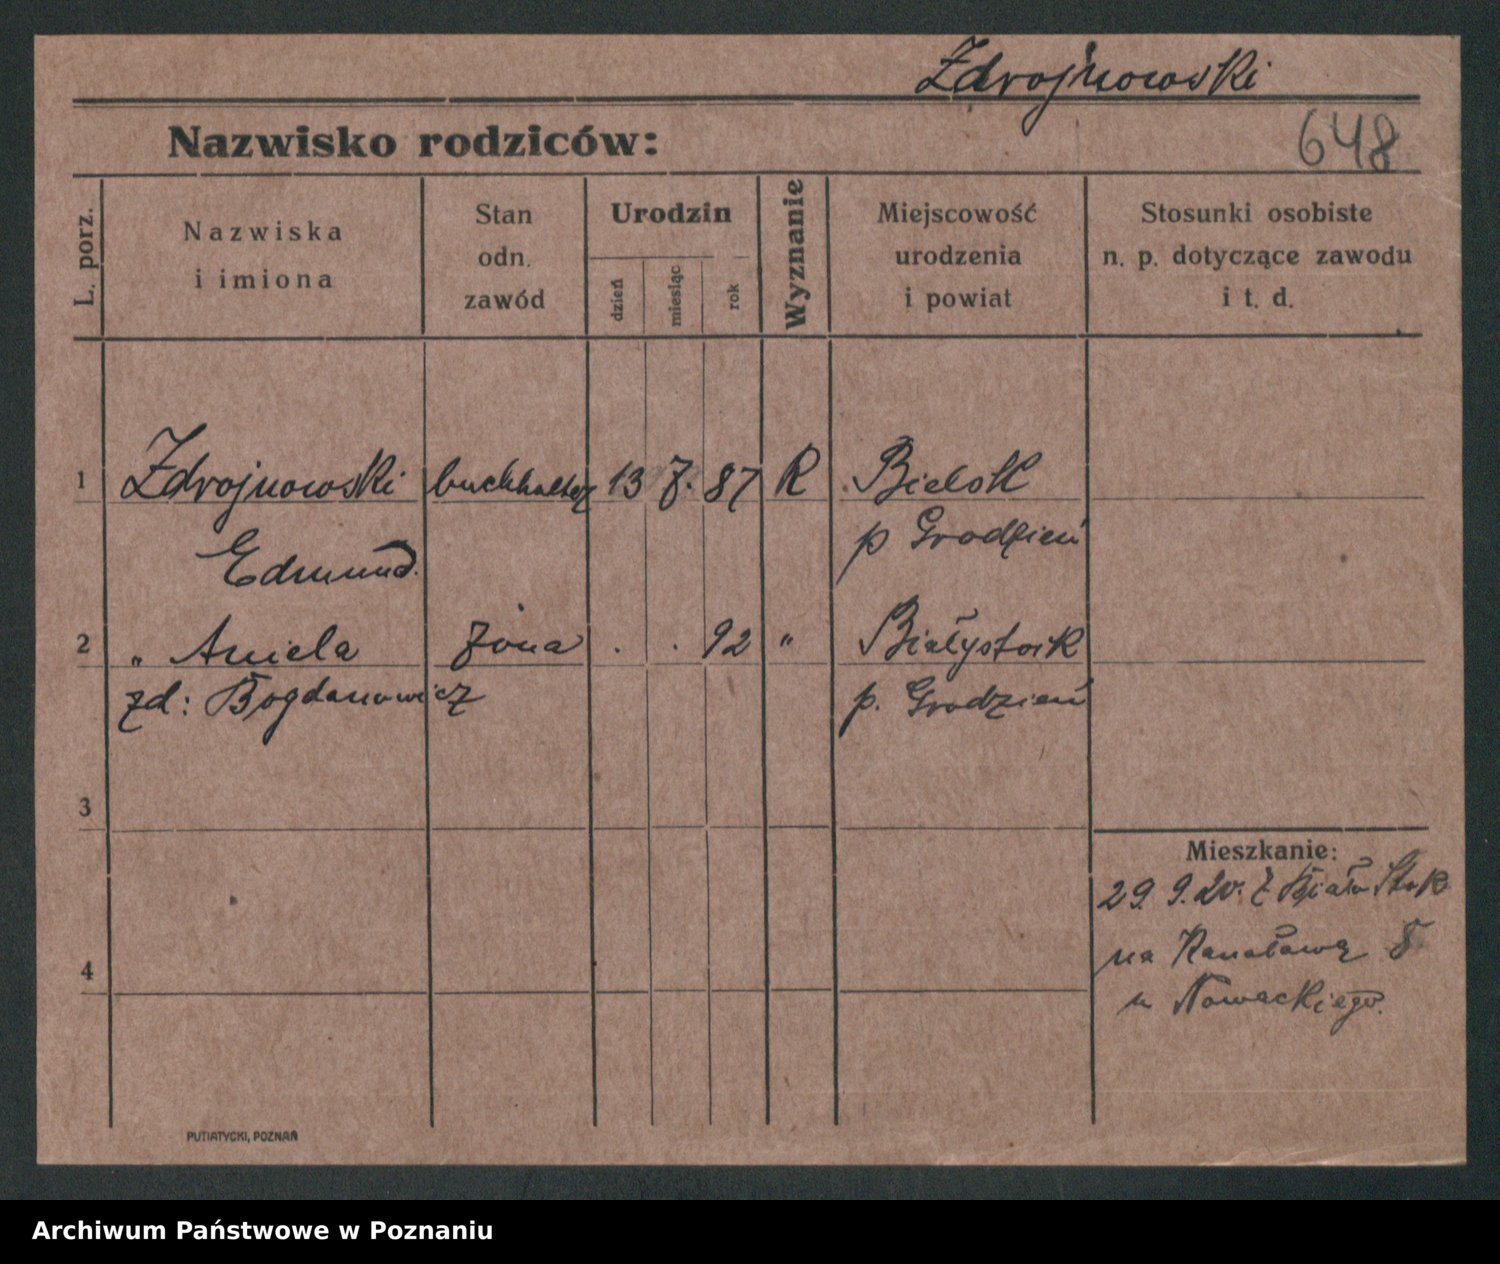 Zdrojnowski
648
Nazwisko rodziców:
L. porz.
Nazwiska
i imiona
Stan
odn.
zawód
Urodzin
dzień
miesiąc
rok
Wyznanie
Miejscowość
urodzenia
i powiat
Stosunki osobiste
n. p. dotyczące zawodu
i t. d.
1 Zdrojnowski buchhalter 13 7. 87 R Bielsk
Edmund. p Grodzień
2 " Aniela żona . . 92 " Białystok
zd: Bogdanowicz p. Grodzień
3
Mieszkanie:
29. 9. 20. z Biało Stok
na Kanałową 8
4
u Nowackiego.
PUTIATYCKI, POZNAŃ
Archiwum Państwowe w Poznaniu